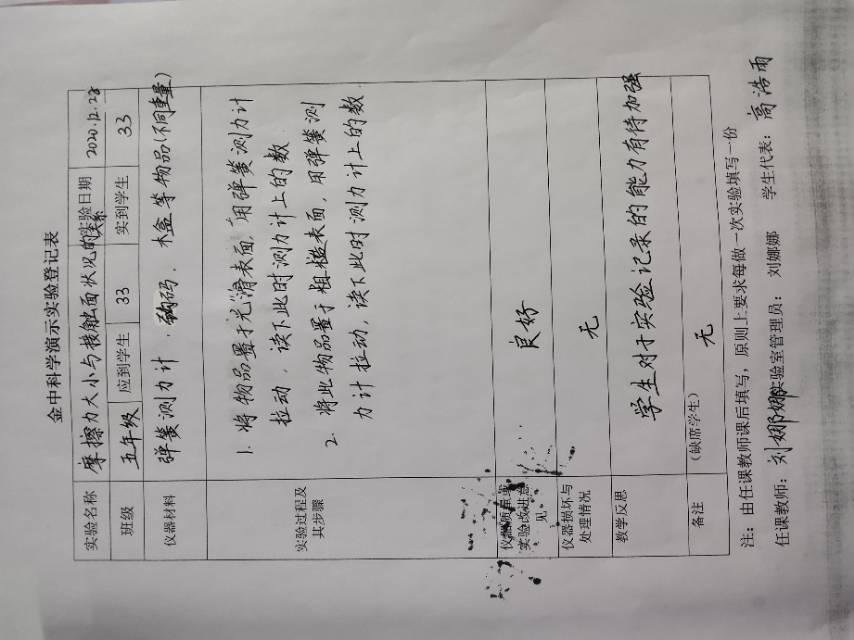 金中科学演示实验登记表
实验名称 摩擦力大小与接触面状况的关系 实验日期 2020.12.28
班级 五年级 应到学生 33 实到学生 33
仪器材料 弹簧测力计、钩码、木盒等物品(不同重量)
实验过程及其步骤
1. 将物品置于光滑表面,用弹簧测力计
拉动,读下此时测力计上的数.
2. 将此物品置于粗糙表面,用弹簧测
力计拉动,读下此时测力计上的数.
仪器质量或实验改进意见 良好
仪器损坏与处理情况 无
教学反思 学生对于实验记录的能力有待加强
备注 (缺席学生) 无
注:由任课教师课后填写,原则上要求每做一次实验填写一份
任课教师:刘娜娜 实验室管理员: 刘娜娜 学生代表:高浩雨